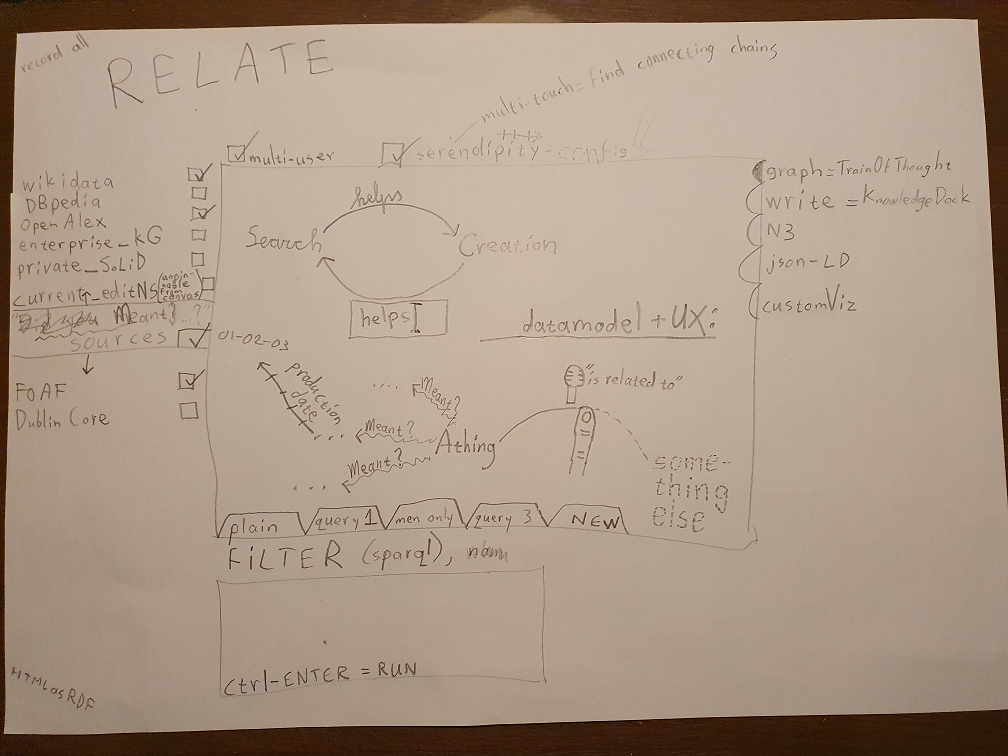 record all
RELATE
multi-touch = Find connecting chains
multi-user
serendipity-config
wikidata
DBpedia
OpenAlex
enterprise_KG
private_SoLiD
current_editNS (unpin-nable from canvas)
Meant? ...?"
sources
FOAF
Dublin Core
helps
Search
Creation
helps
datamodel + UX:
01-02-03
production date
....
Meant?
"is related to"
...
Meant?
Athing
Meant?
...
some-
thing
else
plain
query 1
men only
query 3
NEW
graph = TrainOfThought
write = KnowledgeDock
N3
json-LD
customViz
FiLTER (sparql),
ctrl-ENTER = RUN
HTMLasRDF